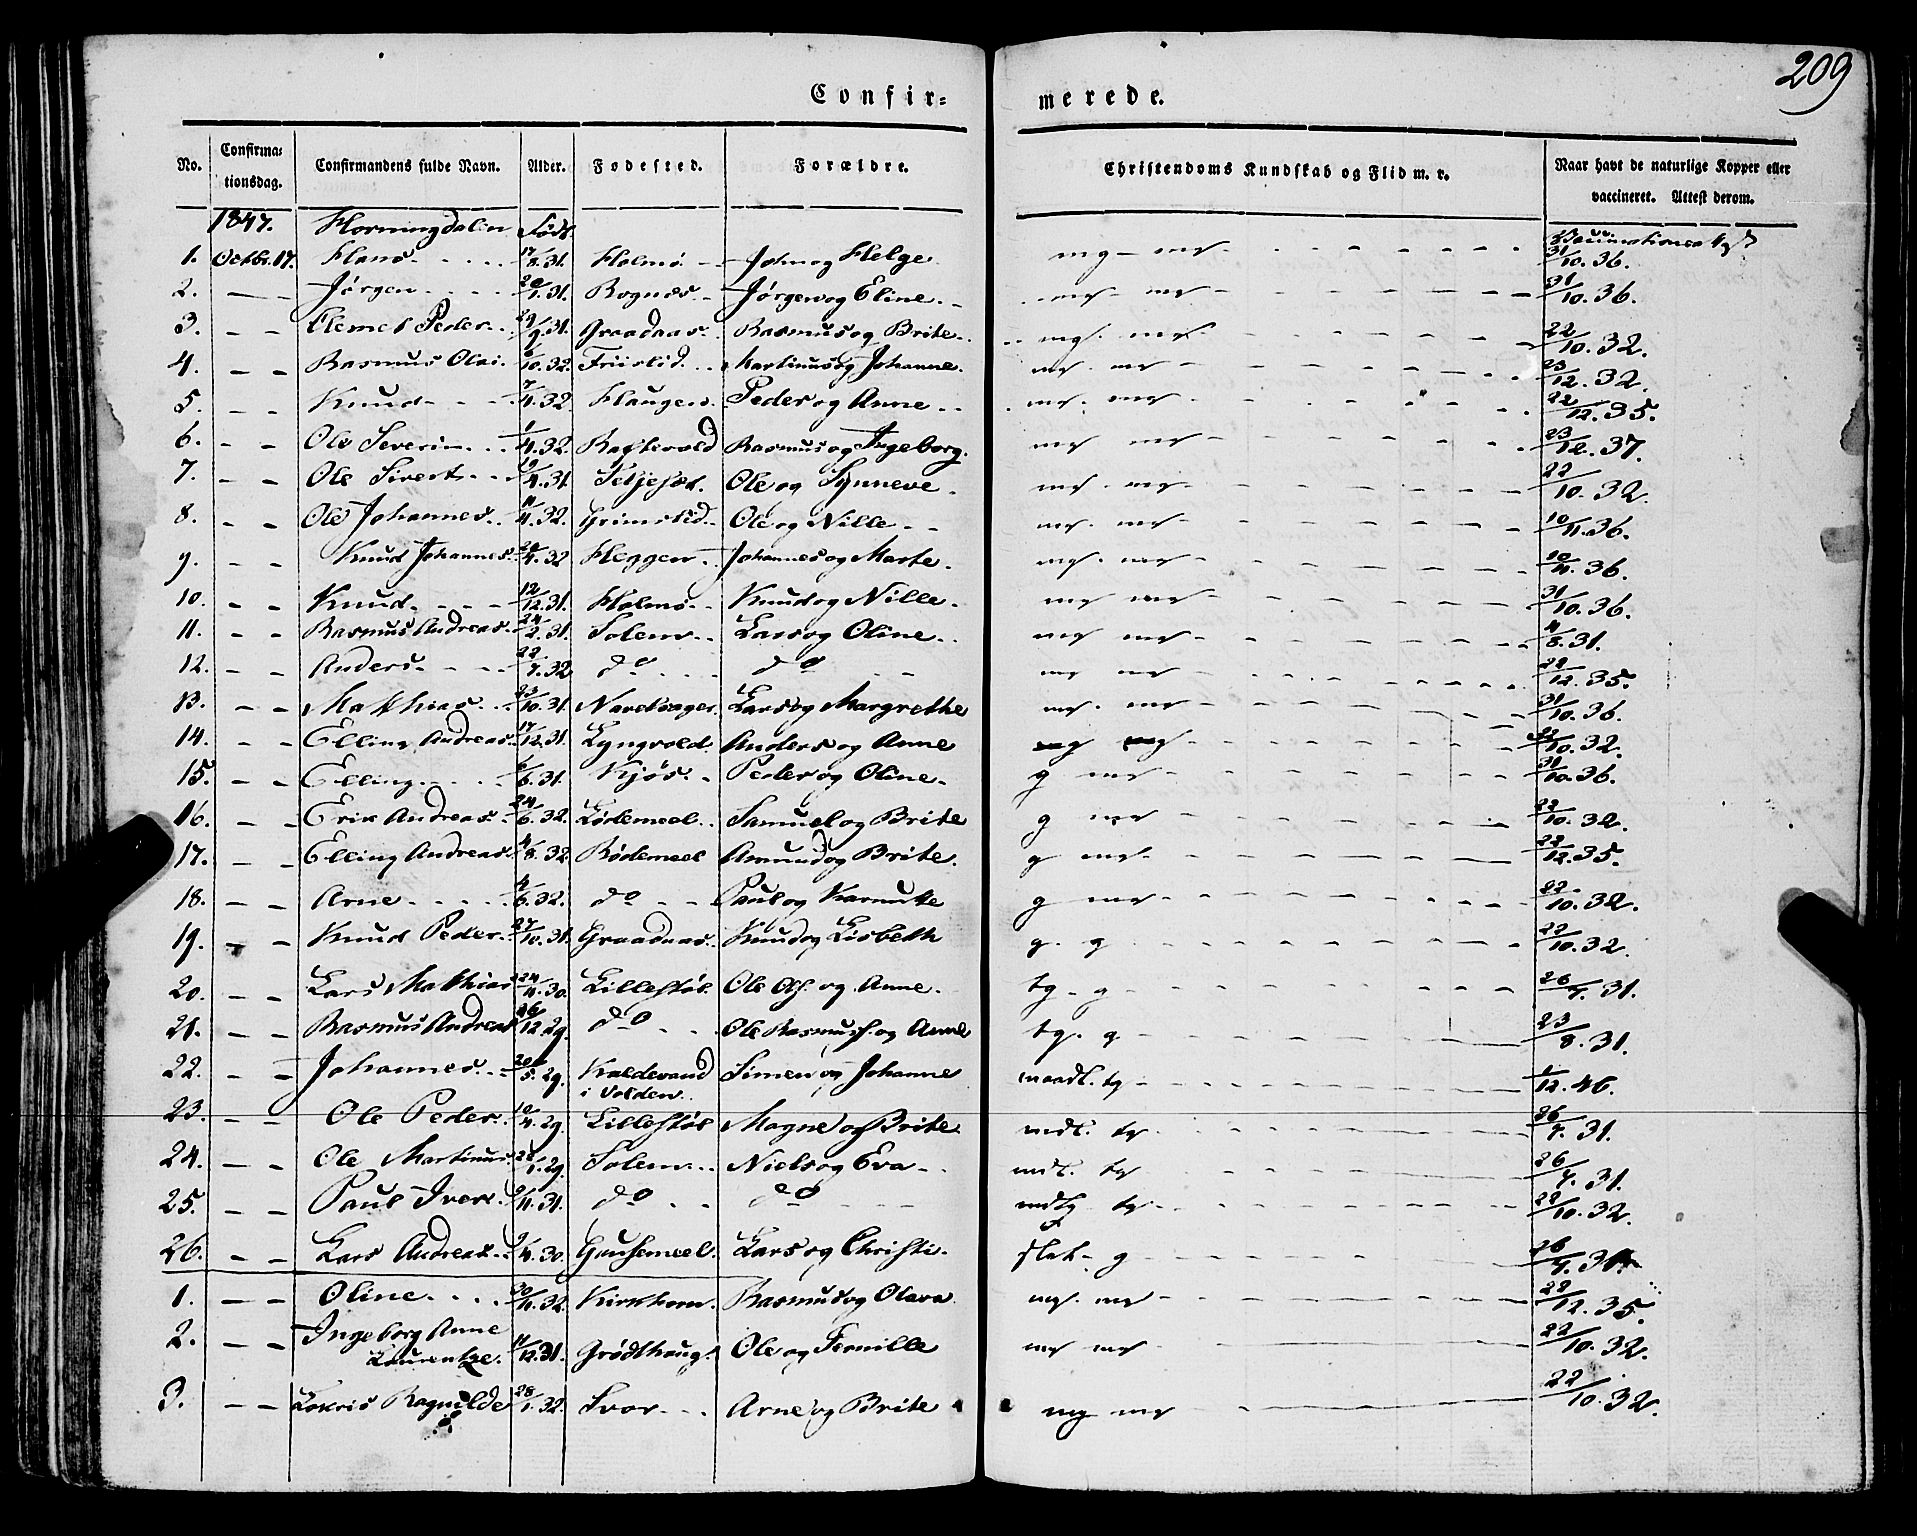 209
Confir= merede.
No. Confirma= tionsdag. Confirmandens fulde Navn. Alder. Fødested. Forældre. Christendoms Kundskab og Flid m. v. Naar havt de naturlige Kopper eller vaccineret. Attest derom.
1847. Horningdalen Født
1. Octbr. 17. Hans 17/8.31. Holmø John og Helge mg mg 31/10.36.
2. Jørgen 20/1.31. Rognæs Jørgen og Eline mg mg 31/10.36.
3. Clemet Peder 29/9.31. Graadaas Rasmus og Brite mg mg 22/10.32.
4. Rasmus Olai /10.32. Friislid Martinus og Johanne mg mg 23/12.32.
5. Knud 7/4.32. Haugen Peder og Anne mg mg 22/12.35.
6. Ole Severin 1/4.32. Raftevold Rasmus og Ingeborg. mg mg 23/12.37.
7. Ole Sivert 19/4.31. Ole og Synneve mg mg 22/10.32.
8. Ole Johannes 11/4.32. Grimslid Ole og Nille mg mg 10/11.36.
9. Knud Johannes 20/4.32 Heggen Johannes og Marte mg mg 10/11.36.
10. Knud 12/12.31. Holmø Knud og Nille mg mg 31/10.36.
11. Rasmus Andreas 24/2.31. Solem Lars og Oline mg mg 4/8.31.
12. Anders 22/7.32 do do mg mg 22/12.35.
13. Matthias 23/10.31. Lars og Margrethe mg mg 31/10.36.
14. Elling Andreas 17/12.31. Lyngvold Anders og Anne mg mg 22/10.32.
15. Elling /6.31. Kjøs Peder og Oline g mg 31/10.36.
16. Erik Andreas 24/6.32. Lødemeel Samuel og Brite g mg 22/10.32.
17. Elling Andreas 4/8.32. Rødemeel Amund og Brite g mg 22/12.35.
18. Arne 4/6.32. do Paul og g mg 22/10.32.
19. Knud Peder 27/10.31. Graadaas Knud og Lisbeth g. g 22/10.32.
20. Lars Matthias 24/11.30. Lillestøl Ole Ols. og Anne tg g 26/7.31.
21. Rasmus Andreas 26/12.29. do Ole Rasmuss. og Anne tg. g 23/8.31.
22. Johannes 20/5.29. Kaldevand i Volden Simen og Johanne maadl. tg 1/12.46.
23. Ole Peder 10/4.29. Lillestøl Magne og Brite mdl. tg 26/7.31.
24. Ole Martinus 28/1.29. Solem Niels og Eva mdl. tg 26/7.31.
25. Paul Iver 9/11.31. do do mdlg tg 22/10.32.
26. Lars Andreas 9/4.30. Gausemeel Lars og Christi slet g 26/7.31.
1. Oline 30/11.32. Kirkhorn Rasmus og Olava mg. mg 22/12.35.
2. Ingeborg Anne Laurentze. 11/12.31. Grødthaug Ole og Pernille mg mg 22/10.32.
3. Ragnilde 28/1.32. Svor Arne og Brite mg mg 22/10.32.